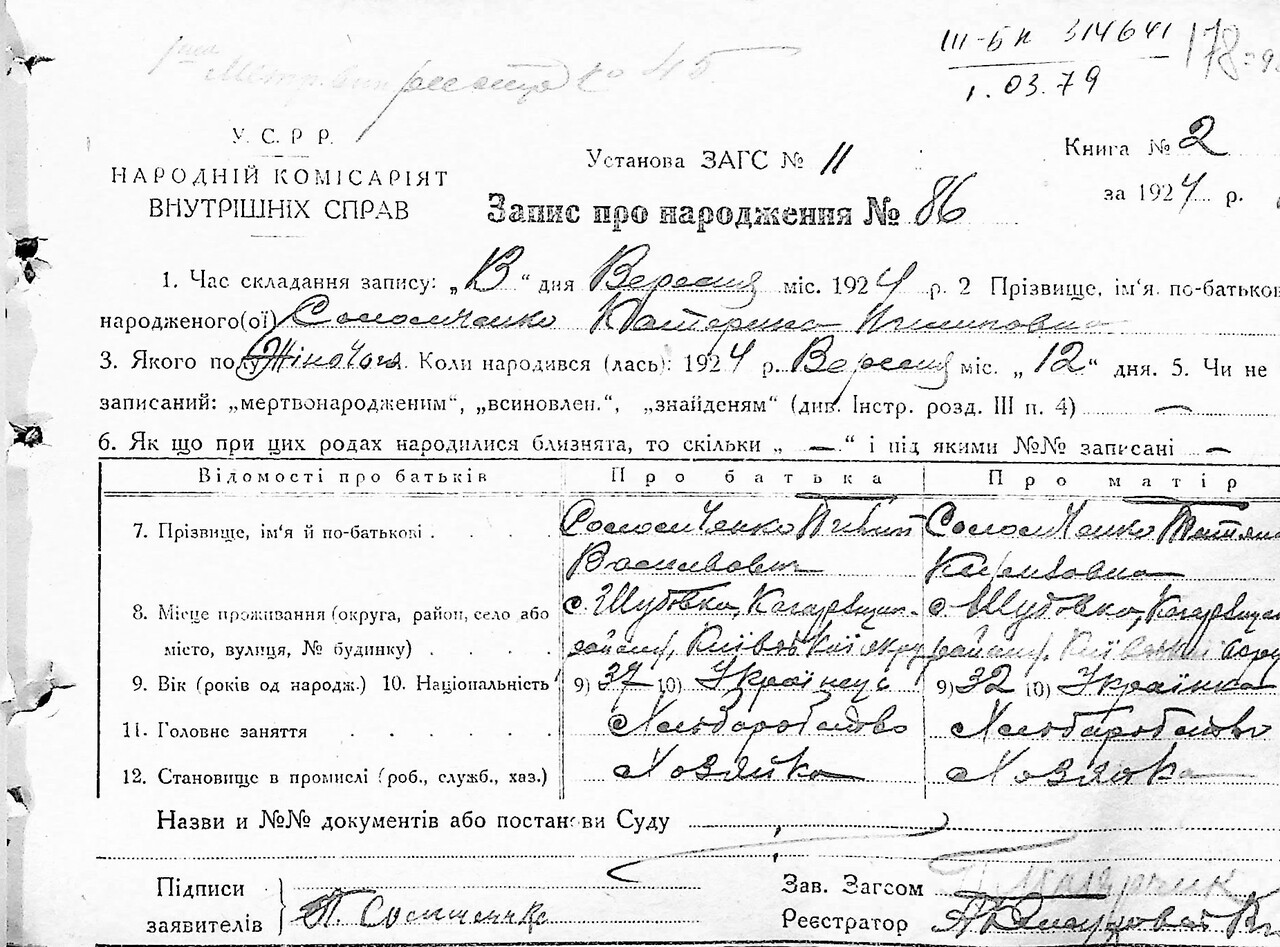 III-БК 314641 178
1.03.79
№ 45
У. С. Р Р.
НАРОДНІЙ КОМІСАРІЯТ
ВНУТРІШНІХ СПРАВ
Установа ЗАГС № 11
Книга № 2
за 1924 р.
Запис про народження № 86
1. Час складання запису: „ “ дня Вересня міс. 1924 р. 2 Прізвище, ім‘я по-батькові
народженого(ої) Солосиченко Катерина Пилиповна
3. Якого полу Жіночого. Коли народився (лась): 1924 р. Вересня міс. „ 12 “ дня. 5. Чи не
записаний: „мертвонародженим“, „всиновлен.“, „знайденям“ (див. Інстр. розд. III п. 4) —
6. Як що при цих родах народилися близнята, то скільки „ — “ і під якими №№ записані —
Відомості про батьків Про батька Про матір
7. Прізвище, ім‘я й по-батькові . . . . Солосиченко Пилип Солосиченко Татяна
Васильович
8. Місце проживання (округа, район, село або с. Шубовка, с. Шубовка,
місто, вулиця, № будинку) . . . .
9. Вік (років од народж.) 10. Національність 9) 37 10) Українець 9) 32 10) Українка
11. Головне заняття . . . . . . Хліборобство Хліборобство
12. Становище в промислі (роб., служб., хаз.) Хозяйка Хозяйка
Назви и №№ документів або постанови Суду
Підписи Зав. Загсом
заявителів П. Реєстратор